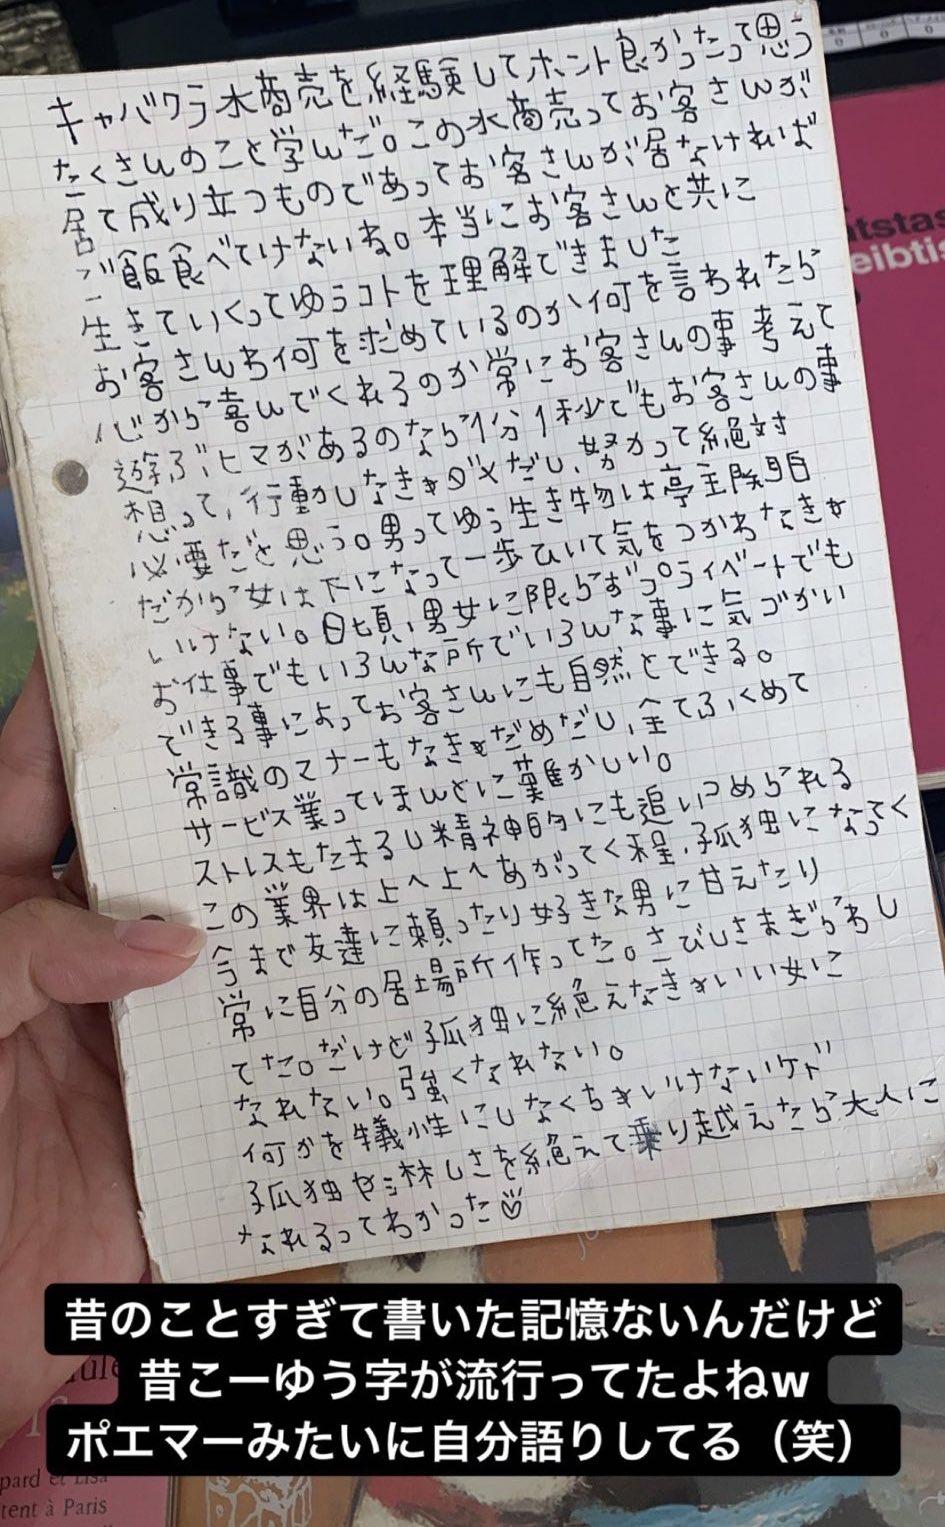 キャバクラ水商売を経験してホント良かったって思う
たくさんのこと学んだ。この水商売ってお客さんが
居て成り立つものであってお客さんが居なければ
ご飯食べてけないね。本当にお客さんと共に
生きていくってゆうコトを理解できました
お客さんわ何を求めているのか何を言われたら
心から喜んでくれるのか常にお客さんの事考えて
遊ぶヒマがあるのなら1分1秒でもお客さんの事
想って、行動かしなきゃダメだし、努力って絶対
必要だと思う。男ってゆう生き物は亭主関白
だから女は下になって一歩ひいて気をつかわなきゃ
いけない。日頃、男女に限らずプライベートでも
お仕事でもいろんな所でいろんな事に気づかい
できる事によってお客さんにも自然とできる。
常識のマナーもなきゃだめだし、全てふくめて
サービス業ってほんとに難かしい。
ストレスもたまるし精神的にも追いつめられる
この業界は上へ上へあがってく程、孤独になってく
今まで友達に頼ったり好きな男に甘えたり
常に自分の居場所作ってた。さびしさまぎらわし
てた。だけど孤独に絶えなきゃいい女に
なれない。強くなれない。
何かを犠性にしなくちゃいけないケド
孤独や淋しさを絶えて乗り越えたら大人に
なれるってわかった♡
tstas
eibtis
昔のことすぎて書いた記憶ないんだけど
昔こーゆう字が流行ってたよねw
ポエマーみたいに自分語りしてる（笑）
pard et Lisa
tent à Paris